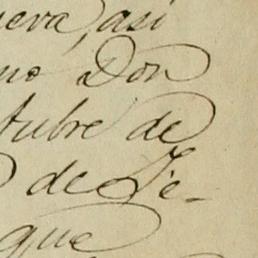 ueva, así
mo Don
tubre de
de Fe-
que